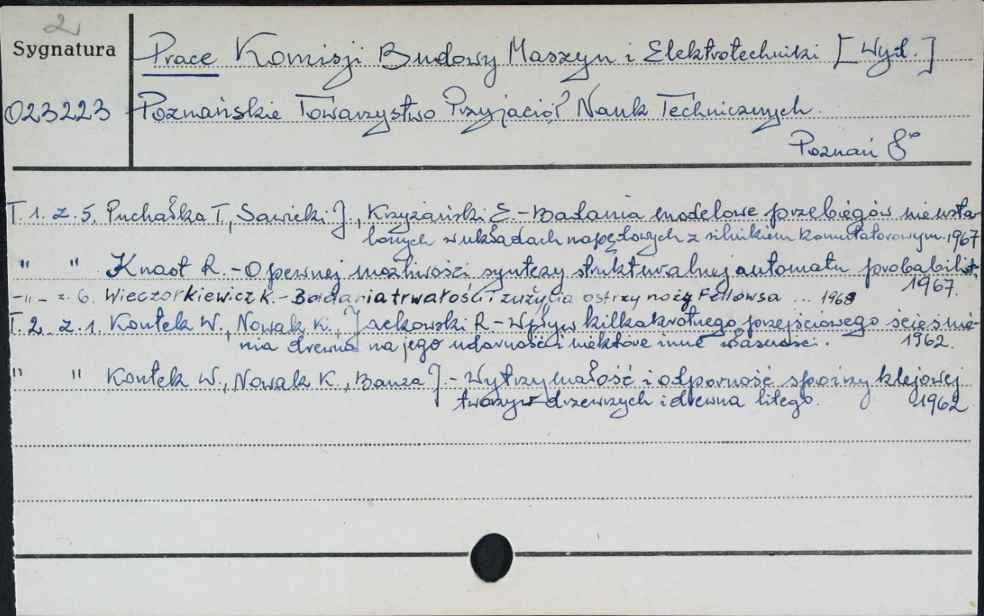 2
Sygnatura
Prace Komisji Budowy Maszyn i Elektrotechniki [Wyd.]
023223
Poznańskie Towarzystwo Przyjaciół Nauk Technicznych.
Poznań 8°
T. 1. z. 5. Puchałka T., Sawicki J., Krzyżański E. - Badania modelowe przebiegów nieusta-
lonych w układach napędowych z silnikiem komutatorowym. 1967
" " Knast R. - O pewnej możliwości syntezy strukturalnej automatu probabilist.
1967.
-"- z. 6. Wieczorkiewicz K. - Badania trwałości i zużycia ostrzy noży Fellowsa ... 1968
T. 2. z. 1. Kontek W., Nowak K., Jackowski R. - Wpływ kilkakrotnego przejściowego ścieśnie-
nia drewna na jego udarność i niektóre inne własności. 1962.
" " Kontek W., Nowak K., Banza J. - Wytrzymałość i odporność spoiny klejowej
tworzyw drzewnych i drewna litego. 1962